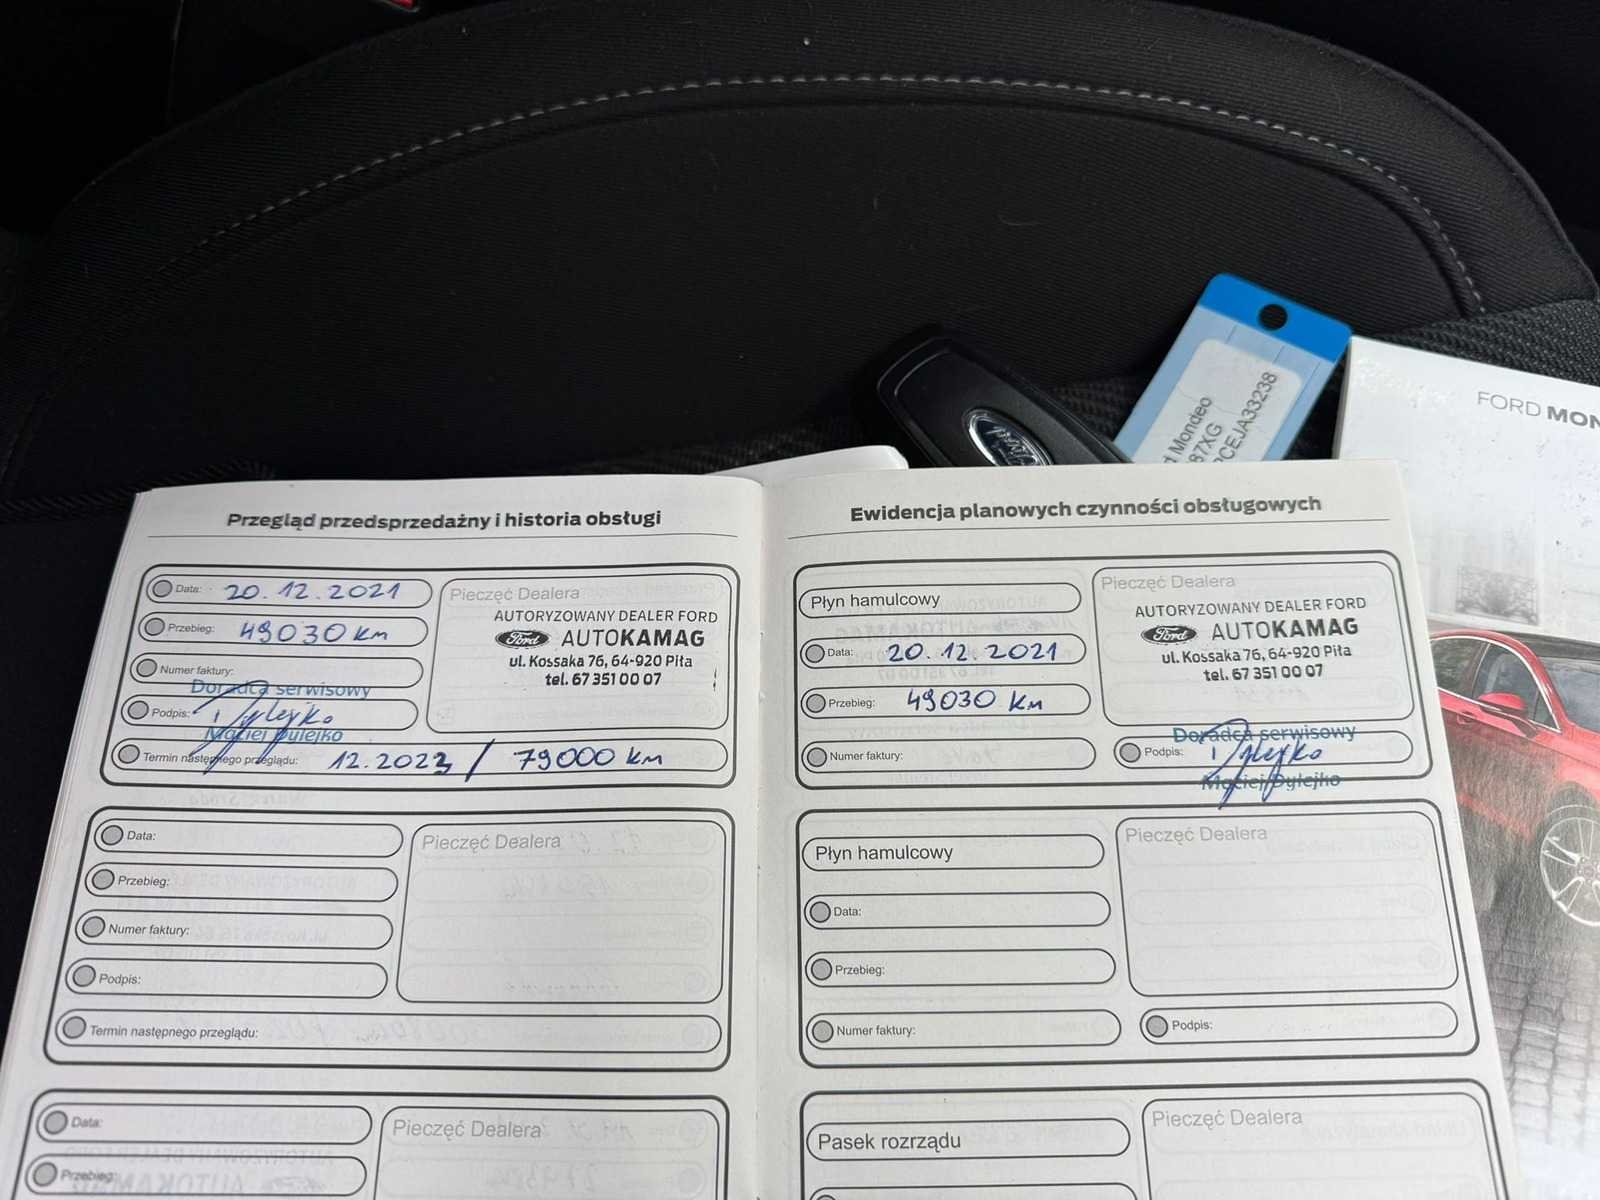 FORD MON
d Mondeo
87XG
CEJA33238
Ford
Przegląd przedsprzedażny i historia obsługi
Data: 20.12.2021
Przebieg: 49030 km
Numer faktury:
Doradca serwisowy
Podpis:
Maciej Dylejko
Termin następnego przeglądu: 12.2023 / 79000 km
Pieczęć Dealera
AUTORYZOWANY DEALER FORD
Ford AUTOKAMAG
ul. Kossaka 76, 64-920 Piła
tel. 67 351 00 07
Data:
Przebieg:
Numer faktury:
Podpis:
Termin następnego przeglądu:
Pieczęć Dealera
Data:
Przebieg:
Pieczęć Dealera
Ewidencja planowych czynności obsługowych
Płyn hamulcowy
Data: 20.12.2021
Przebieg: 49030 km
Numer faktury:
Pieczęć Dealera
AUTORYZOWANY DEALER FORD
Ford AUTOKAMAG
ul. Kossaka 76, 64-920 Piła
tel. 67 351 00 07
Doradca serwisowy
Podpis: Dylejko
Maciej Dylejko
Płyn hamulcowy
Data:
Przebieg:
Numer faktury:
Pieczęć Dealera
Podpis:
Pasek rozrządu
Pieczęć Dealera